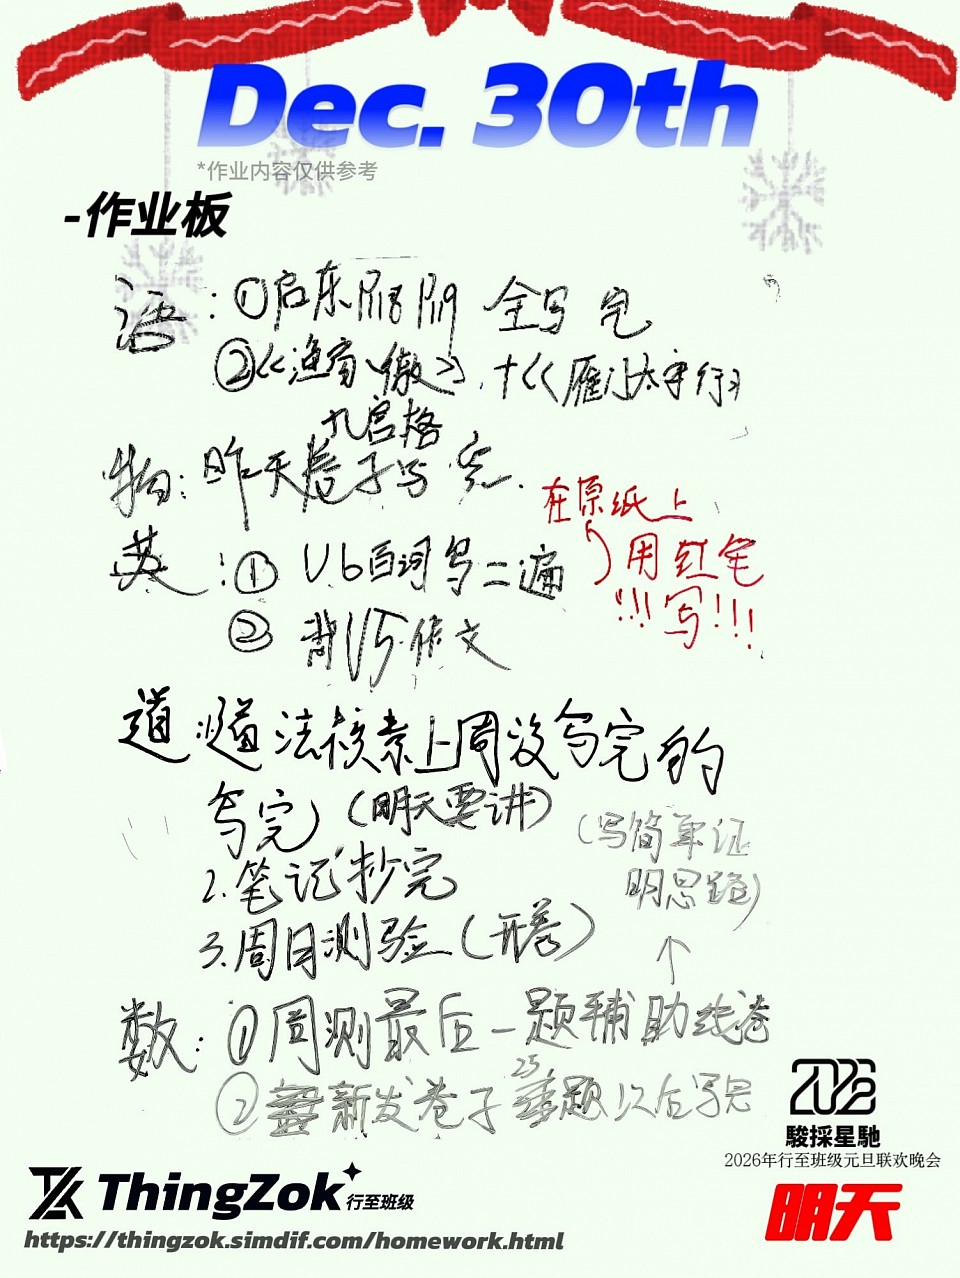 Dec. 30th
*作业内容仅供参考
-作业板
语：①启东P18 P19 全写完
②《渔家傲》+《雁门太守行》
九宫格
物：昨天卷子写完.
在原纸上
用红笔
!!!写!!!
英：① U6百词写二遍
② 背U5作文
道：道法核素上周没写完的
写完（明天要讲）
2.笔记抄完
3.周日测验（开卷）
（写简单证
明思路）
↑
数：①周测最后一题辅助线卷
②新发卷子25题以后写完
2026
駿採星馳
2026年行至班级元旦联欢晚会
明天
ThingZok 行至班级
https://thingzok.simdif.com/homework.html